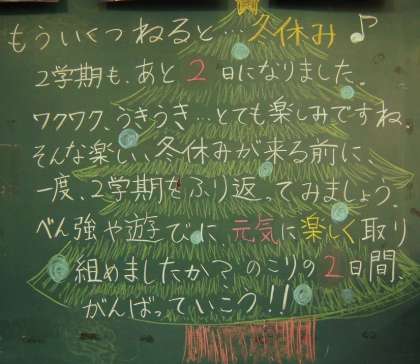 もういくつねると…冬休み♪
2学期も、あと2日になりました。
ワクワク、うきうき…とても楽しみですね。
そんな楽しい、冬休みが来る前に、
一度、2学期をふり返ってみましょう。
べん強や遊びに、元気に楽しく取り
組めましたか？のこりの2日間、
がんばっていこう!!